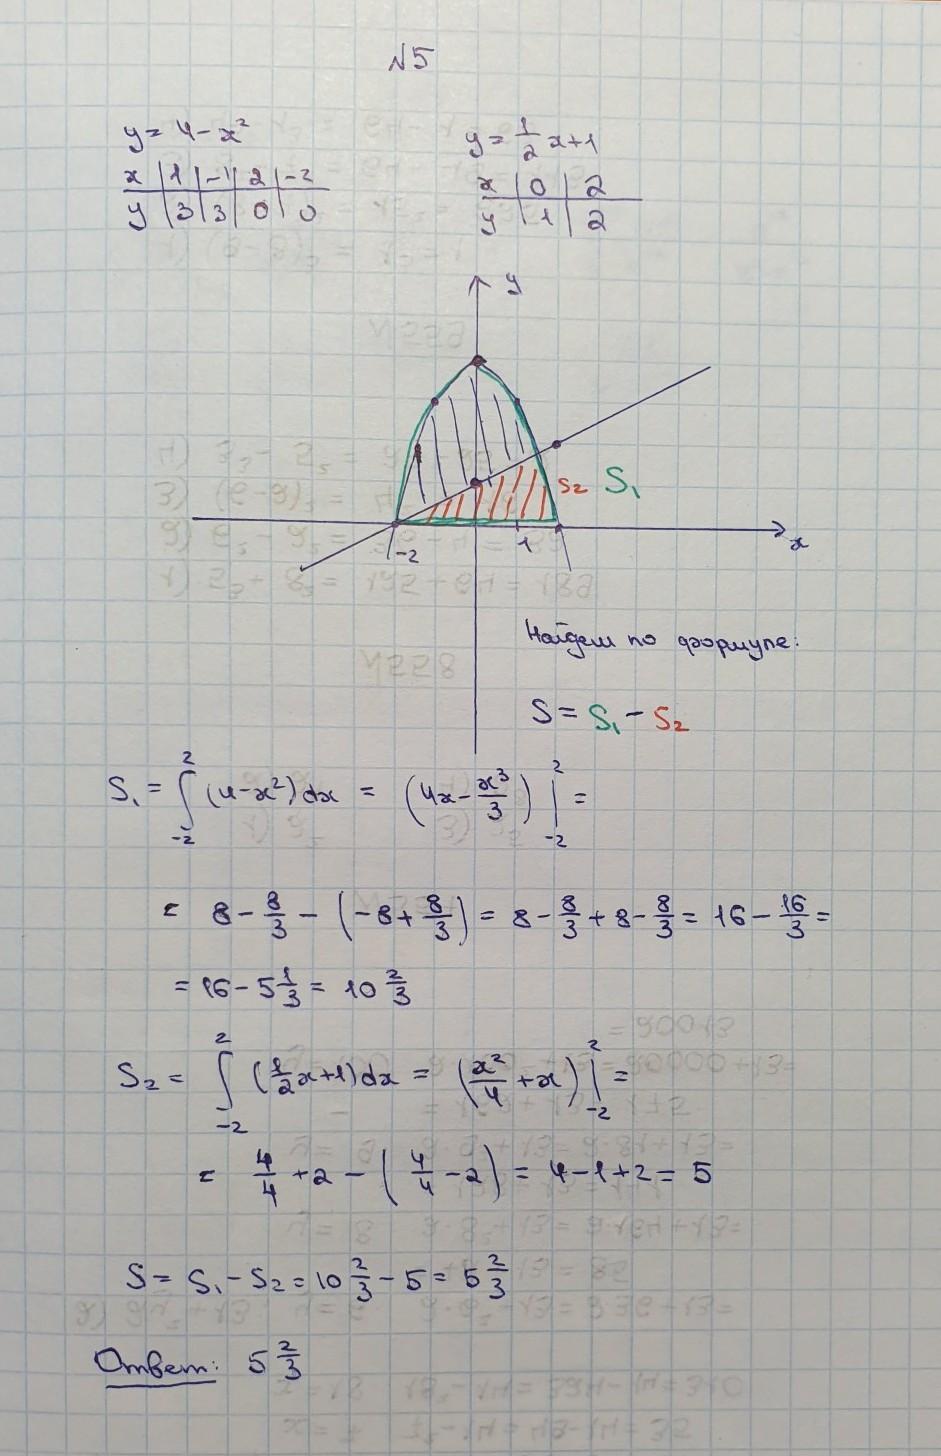 №5
y = 4 - x² y = 1/2 x + 1
x | 1 | -1 | 2 | -2 x | 0 | 2
y | 3 | 3 | 0 | 0 y | 1 | 2
y
S₂ S₁
-2 1 x
Найдем по формуле:
S = S₁ - S₂
S₁ = ∫₋₂² (4 - x²) dx = (4x - x³/3) |₋₂² =
= 8 - 8/3 - (-8 + 8/3) = 8 - 8/3 + 8 - 8/3 = 16 - 16/3 =
= 16 - 5 1/3 = 10 2/3
S₂ = ∫₋₂² (1/2 x + 1) dx = (x²/4 + x) |₋₂² =
= 4/4 + 2 - (4/4 - 2) = 4 - 1 + 2 = 5
S = S₁ - S₂ = 10 2/3 - 5 = 5 2/3
Ответ: 5 2/3